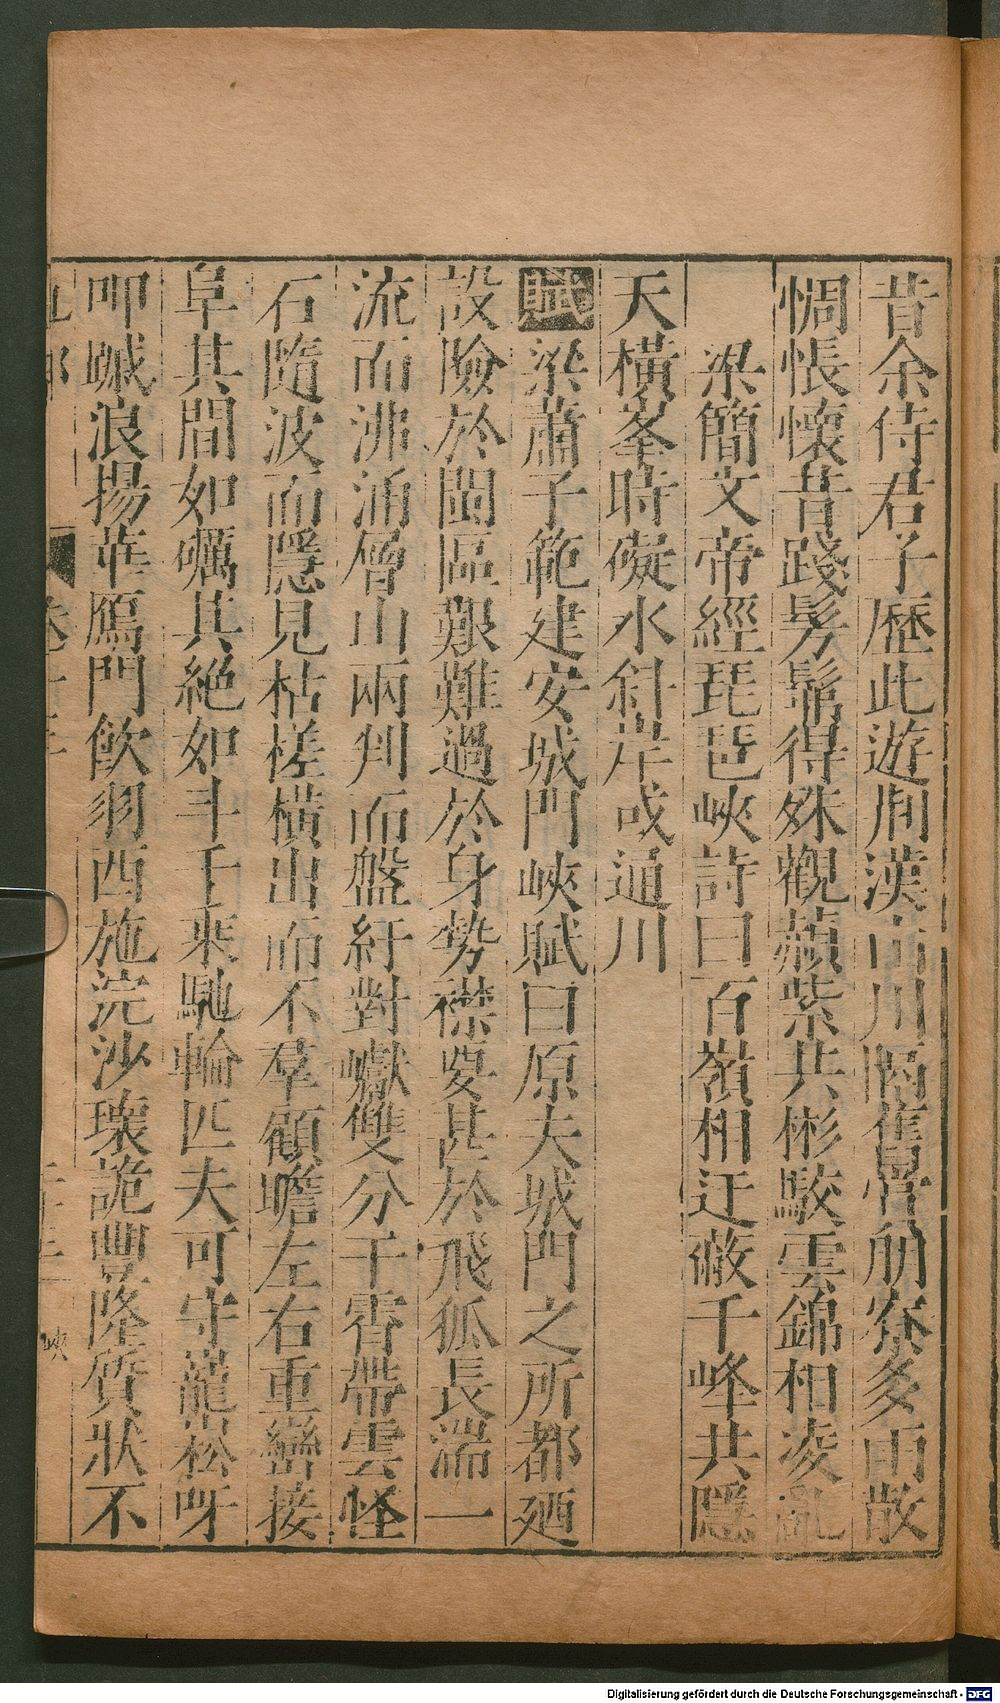 昔余侍君子歷此遊荊漢山川隔舊賞朋寮多雨散
惆悵懷昔踐髣髴得殊觀蘋紫共彬駮雲錦相凌亂
梁簡文帝經琵琶峽詩曰百嶺相迂蔽千峰共隱
天橫峯時礙水斜岸或通川
賦梁蕭子範建安城門峽賦曰原夫城門之所都廼
設險於閩區艱難過於身勢襟要甚於飛狐長湍一
流而沸涌層山兩判而盤紆對巘雙分干霄帶雲怪
石隨波而隱見枯槎橫出而不羣顧瞻左右重巒接
阜其間如礪其絕如斗千乘馳輪匹夫可守龍崧呀
呷瑊浪揚華鴈門飲羽西施浣沙瓌詭豐隆質狀不
峽
Digitalisierung gefördert durch die Deutsche Forschungsgemeinschaft - DFG